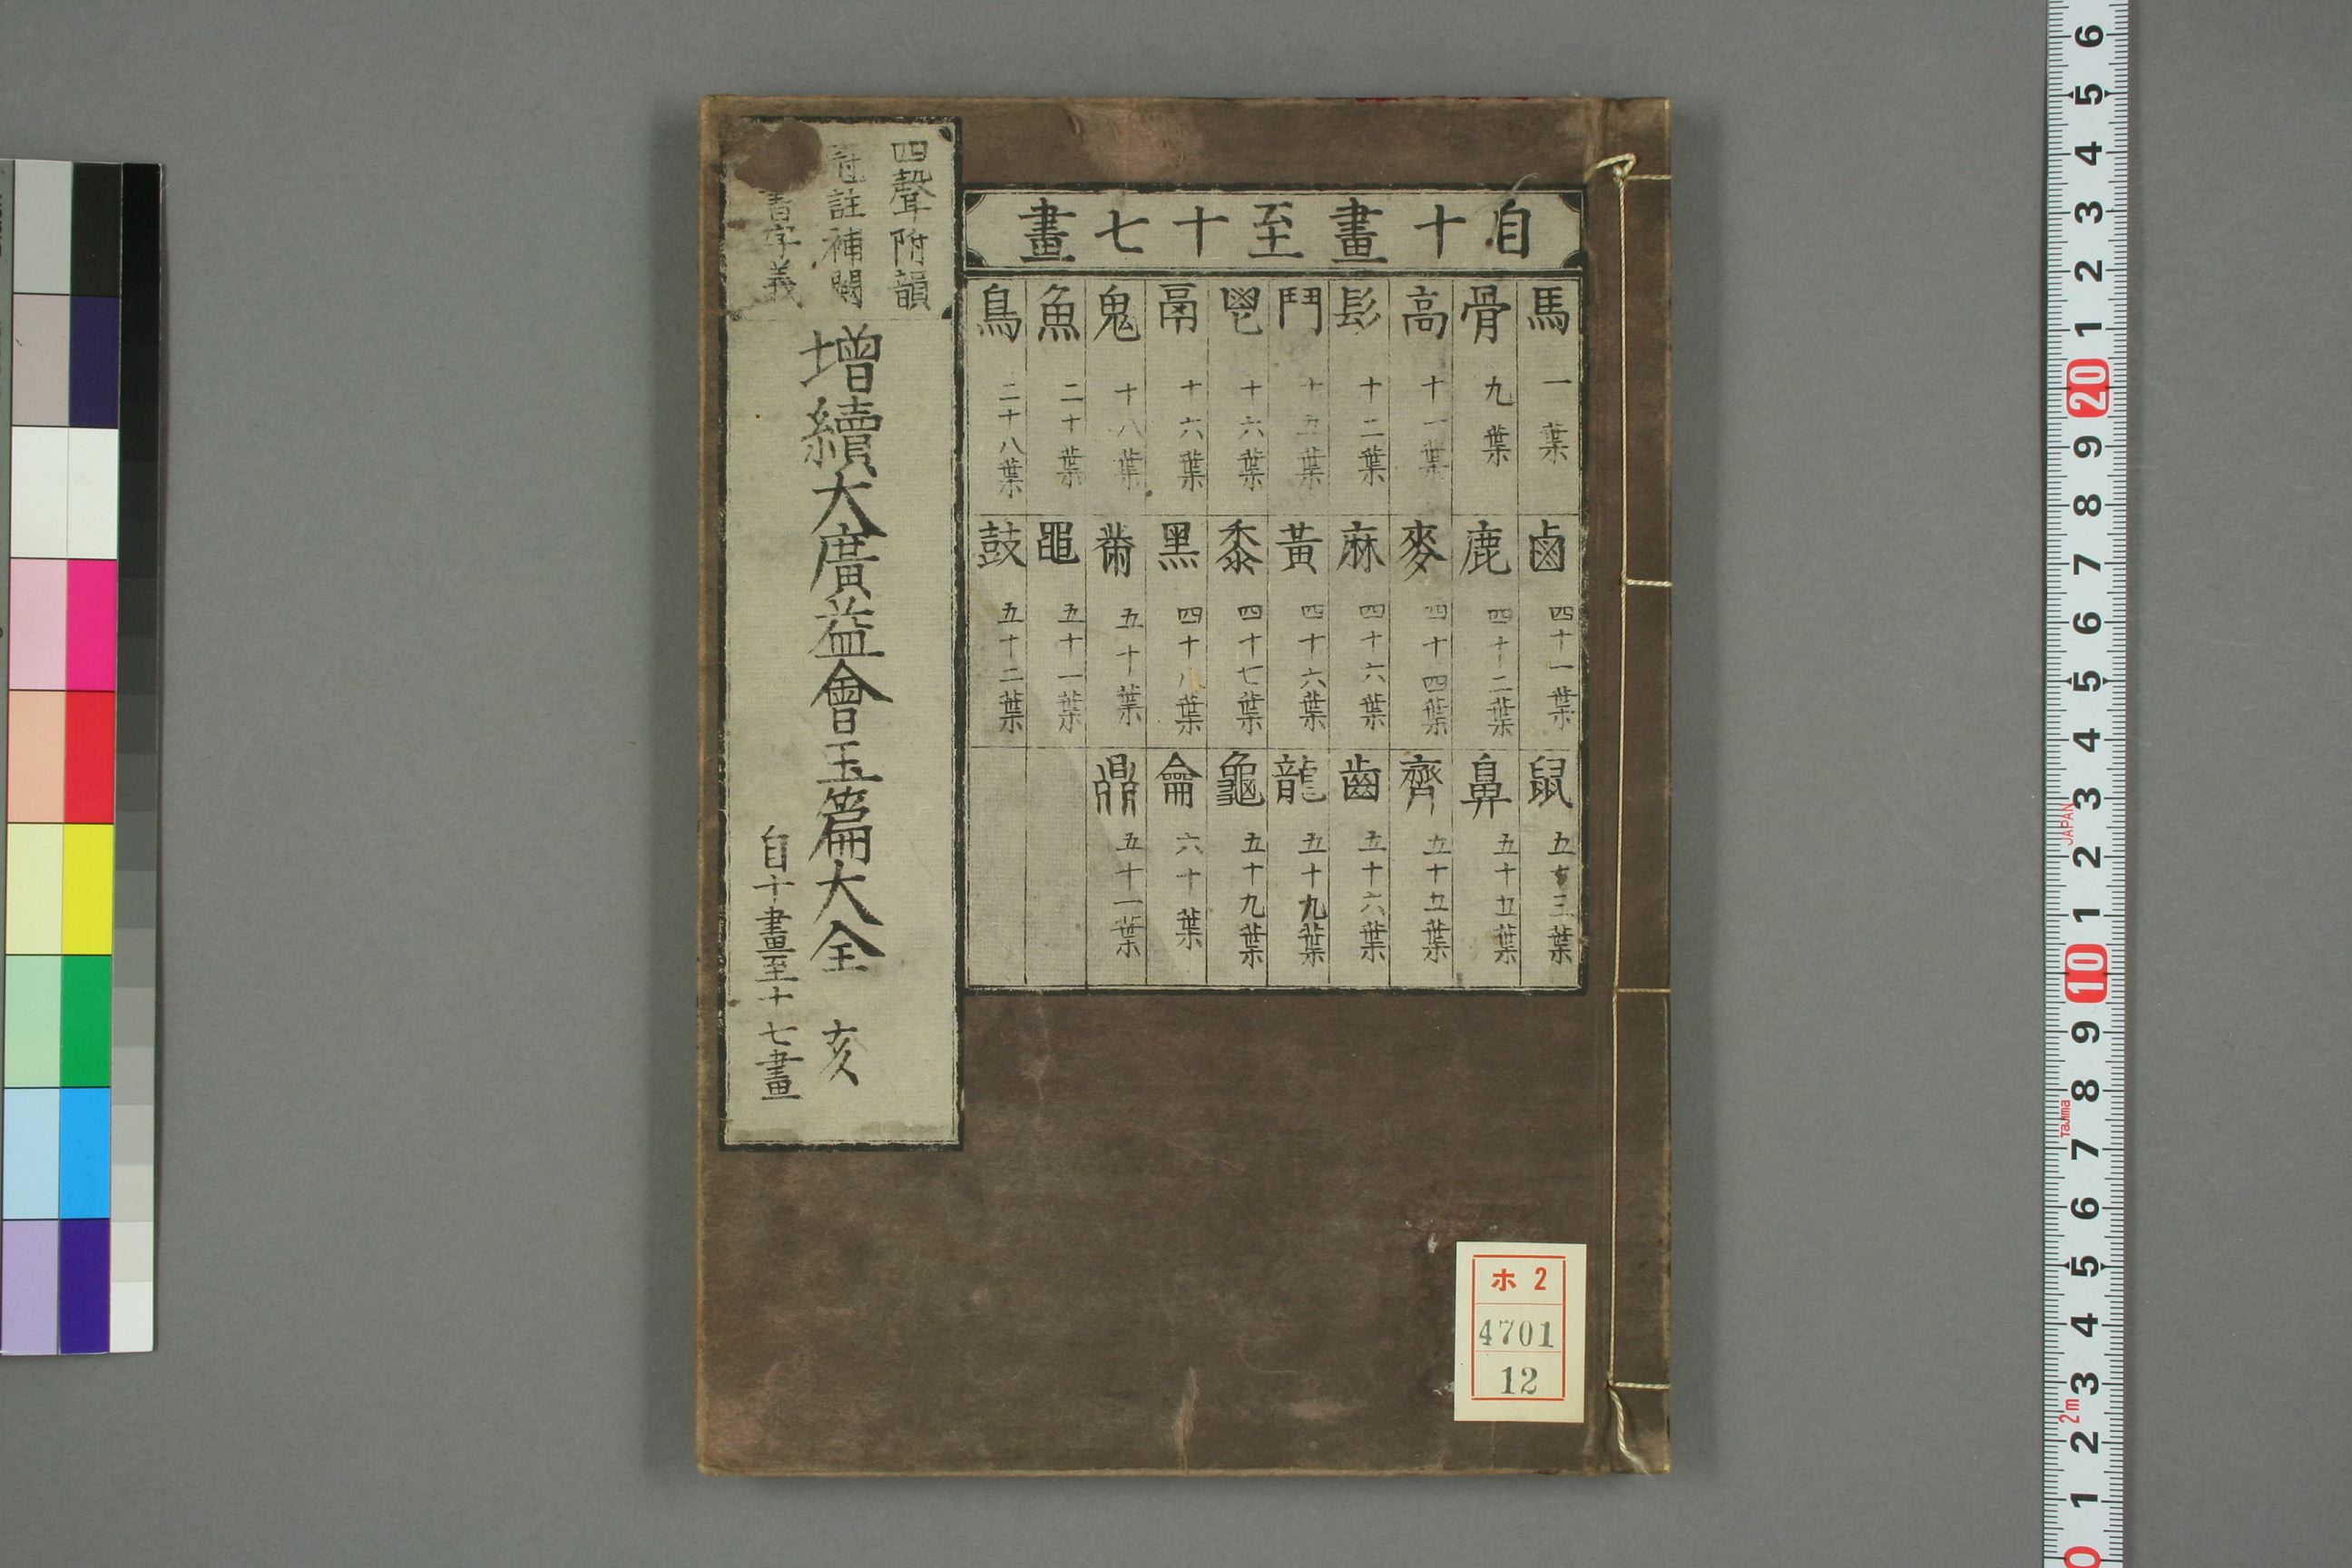 自十畫至十七畫
馬 一葉
骨 九葉
高 十一葉
髟 十二葉
鬥 十五葉
鬯 十六葉
鬲 十六葉
鬼 十八葉
魚 二十葉
鳥 二十八葉
鹵 四十一葉
鹿 四十二葉
麥 四十四葉
麻 四十六葉
黃 四十六葉
黍 四十七葉
黑 四十八葉
黹 五十葉
黽 五十一葉
鼓 五十二葉
鼠 五十三葉
鼻 五十五葉
齊 五十五葉
齒 五十六葉
龍 五十九葉
龜 五十九葉
龠 六十葉
鼎 五十一葉
四聲附韻
冠註補闕
音字義
增續大廣益會玉篇大全 亥
自十畫至十七畫
ホ 2
4701
12
6
5
4
3
2
1
20
9
8
7
6
5
4
3
JAPAN
2
1
10
9
8
Tajima
7
6
5
4
3
2m
2
1
0